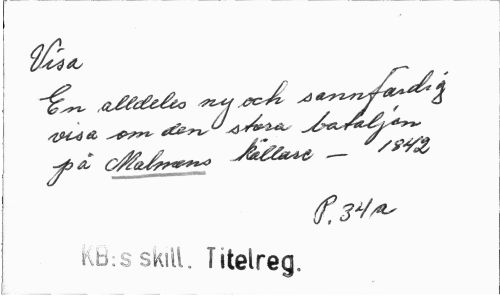 Visa
En alldeles ny och sannfärdig
visa om den stora bataljon
på Malmens källare – 1842
P. 34a
KB:s skill. Titelreg.